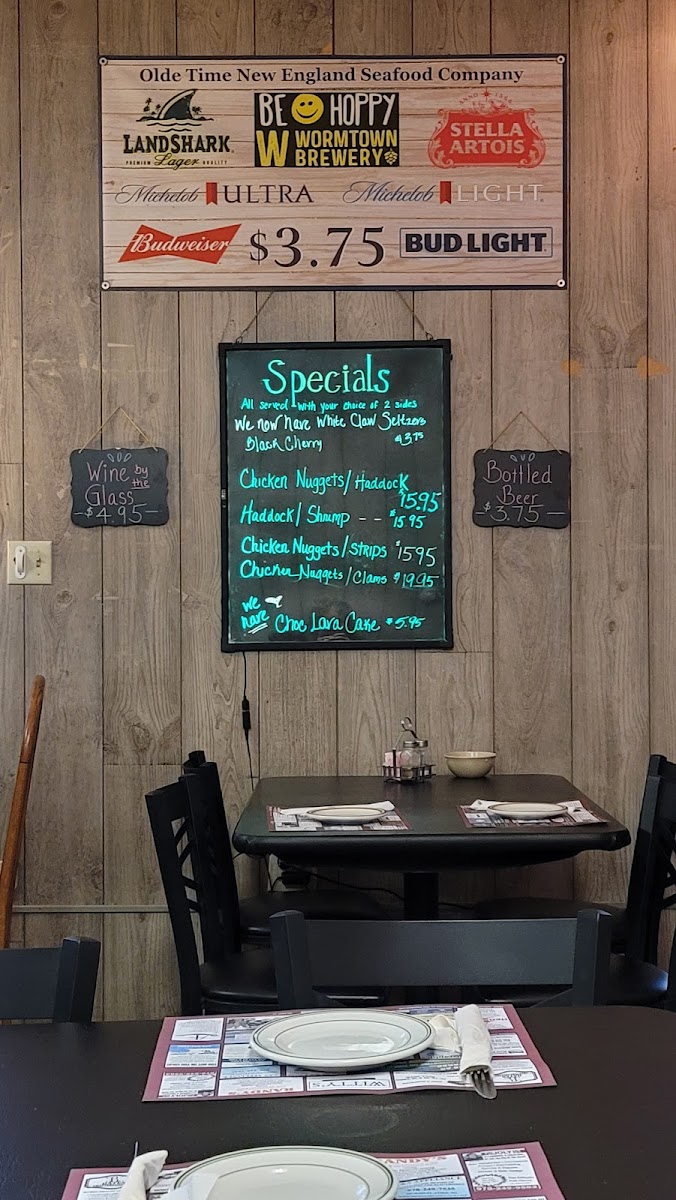 Olde Time New England Seafood Company
LANDSHARK
PREMIUM Lager QUALITY
BE HOPPY
W WORMTOWN
BREWERY
STELLA
ARTOIS
Michelob ULTRA
Michelob LIGHT
Budweiser
$3.75
BUD LIGHT
Specials
All served with your choice of 2 sides
We now have White Claw Seltzers
Black Cherry $3.75
Chicken Nuggets/Haddock
$15.95
Haddock/Shrimp -- $15.95
Chicken Nuggets/STRIPS $15.95
Chicken Nuggets/Clams $19.95
We
have
Choc Lava Cake $5.95
Wine by
the
Glass
-$4.95-
Bottled
Beer
-$3.75-
WITTY'S